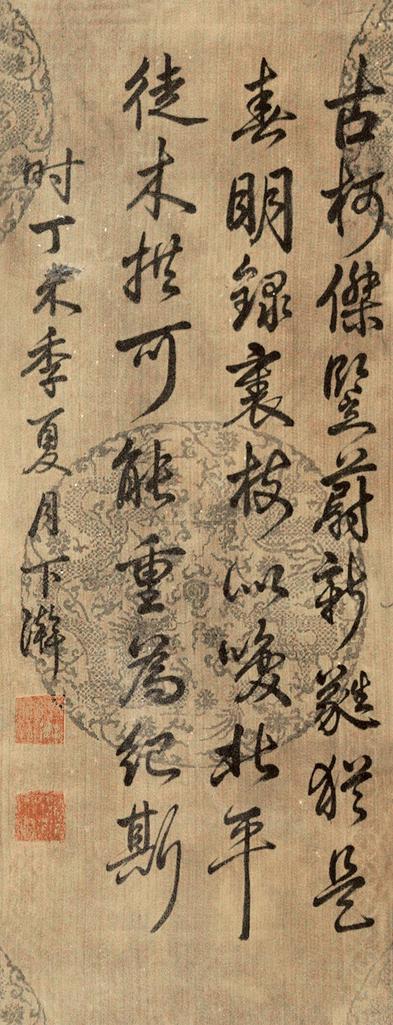 古柯傑竪蔚新蕤猶是
春明錄裏枝似嘆北平
徒木拱可能重為紀斯
时丁未季夏月下澣